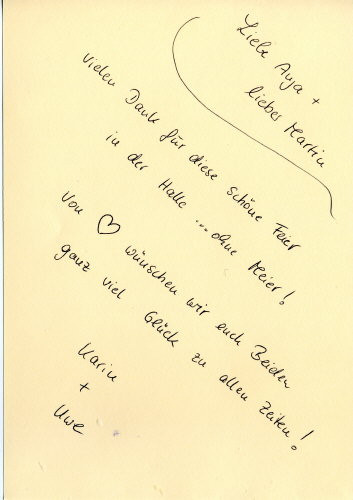 Liebe Anja +
lieber Martin
vielen Dank für diese schöne Feier
in der Halle ... ohne Meier!
Von ♡ wünschen wir euch Beiden
ganz viel Glück zu allen Zeiten!
Karin
+
Uwe